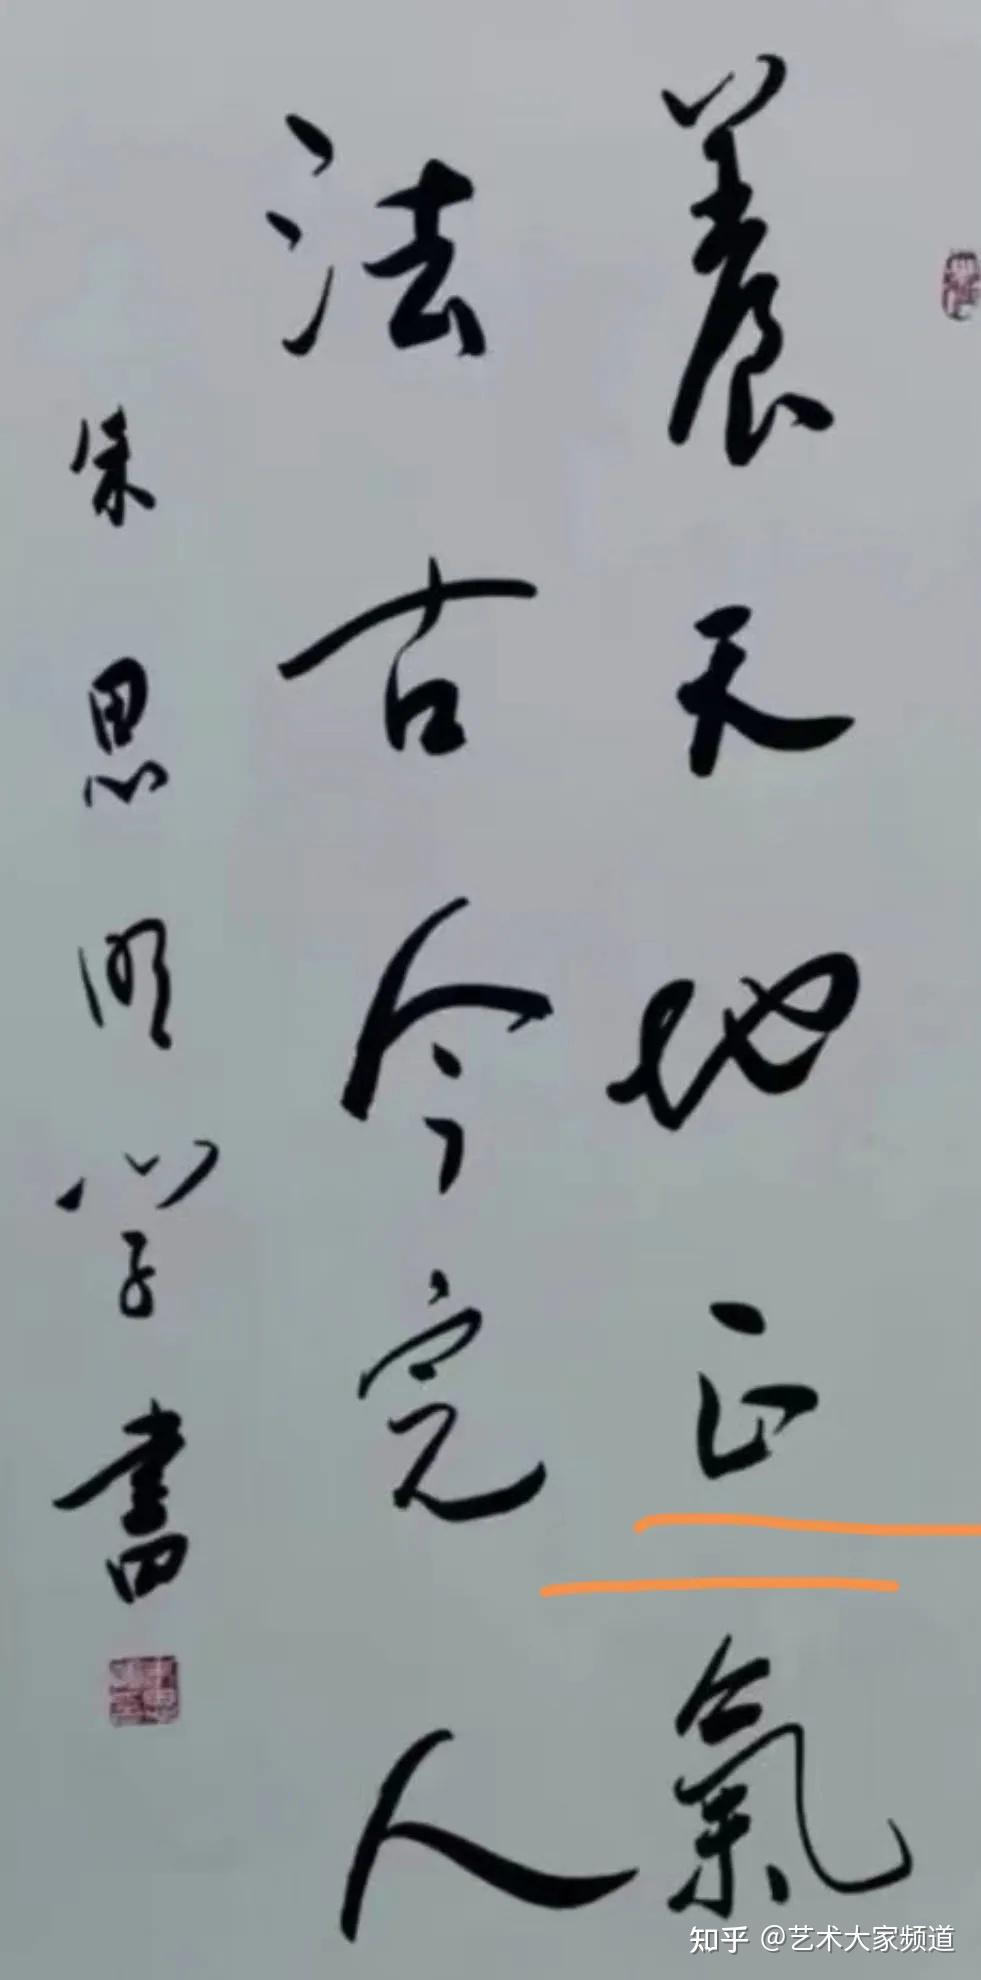 養天地正氣
法古今完人
朱思明学書
知乎 @艺术大家频道